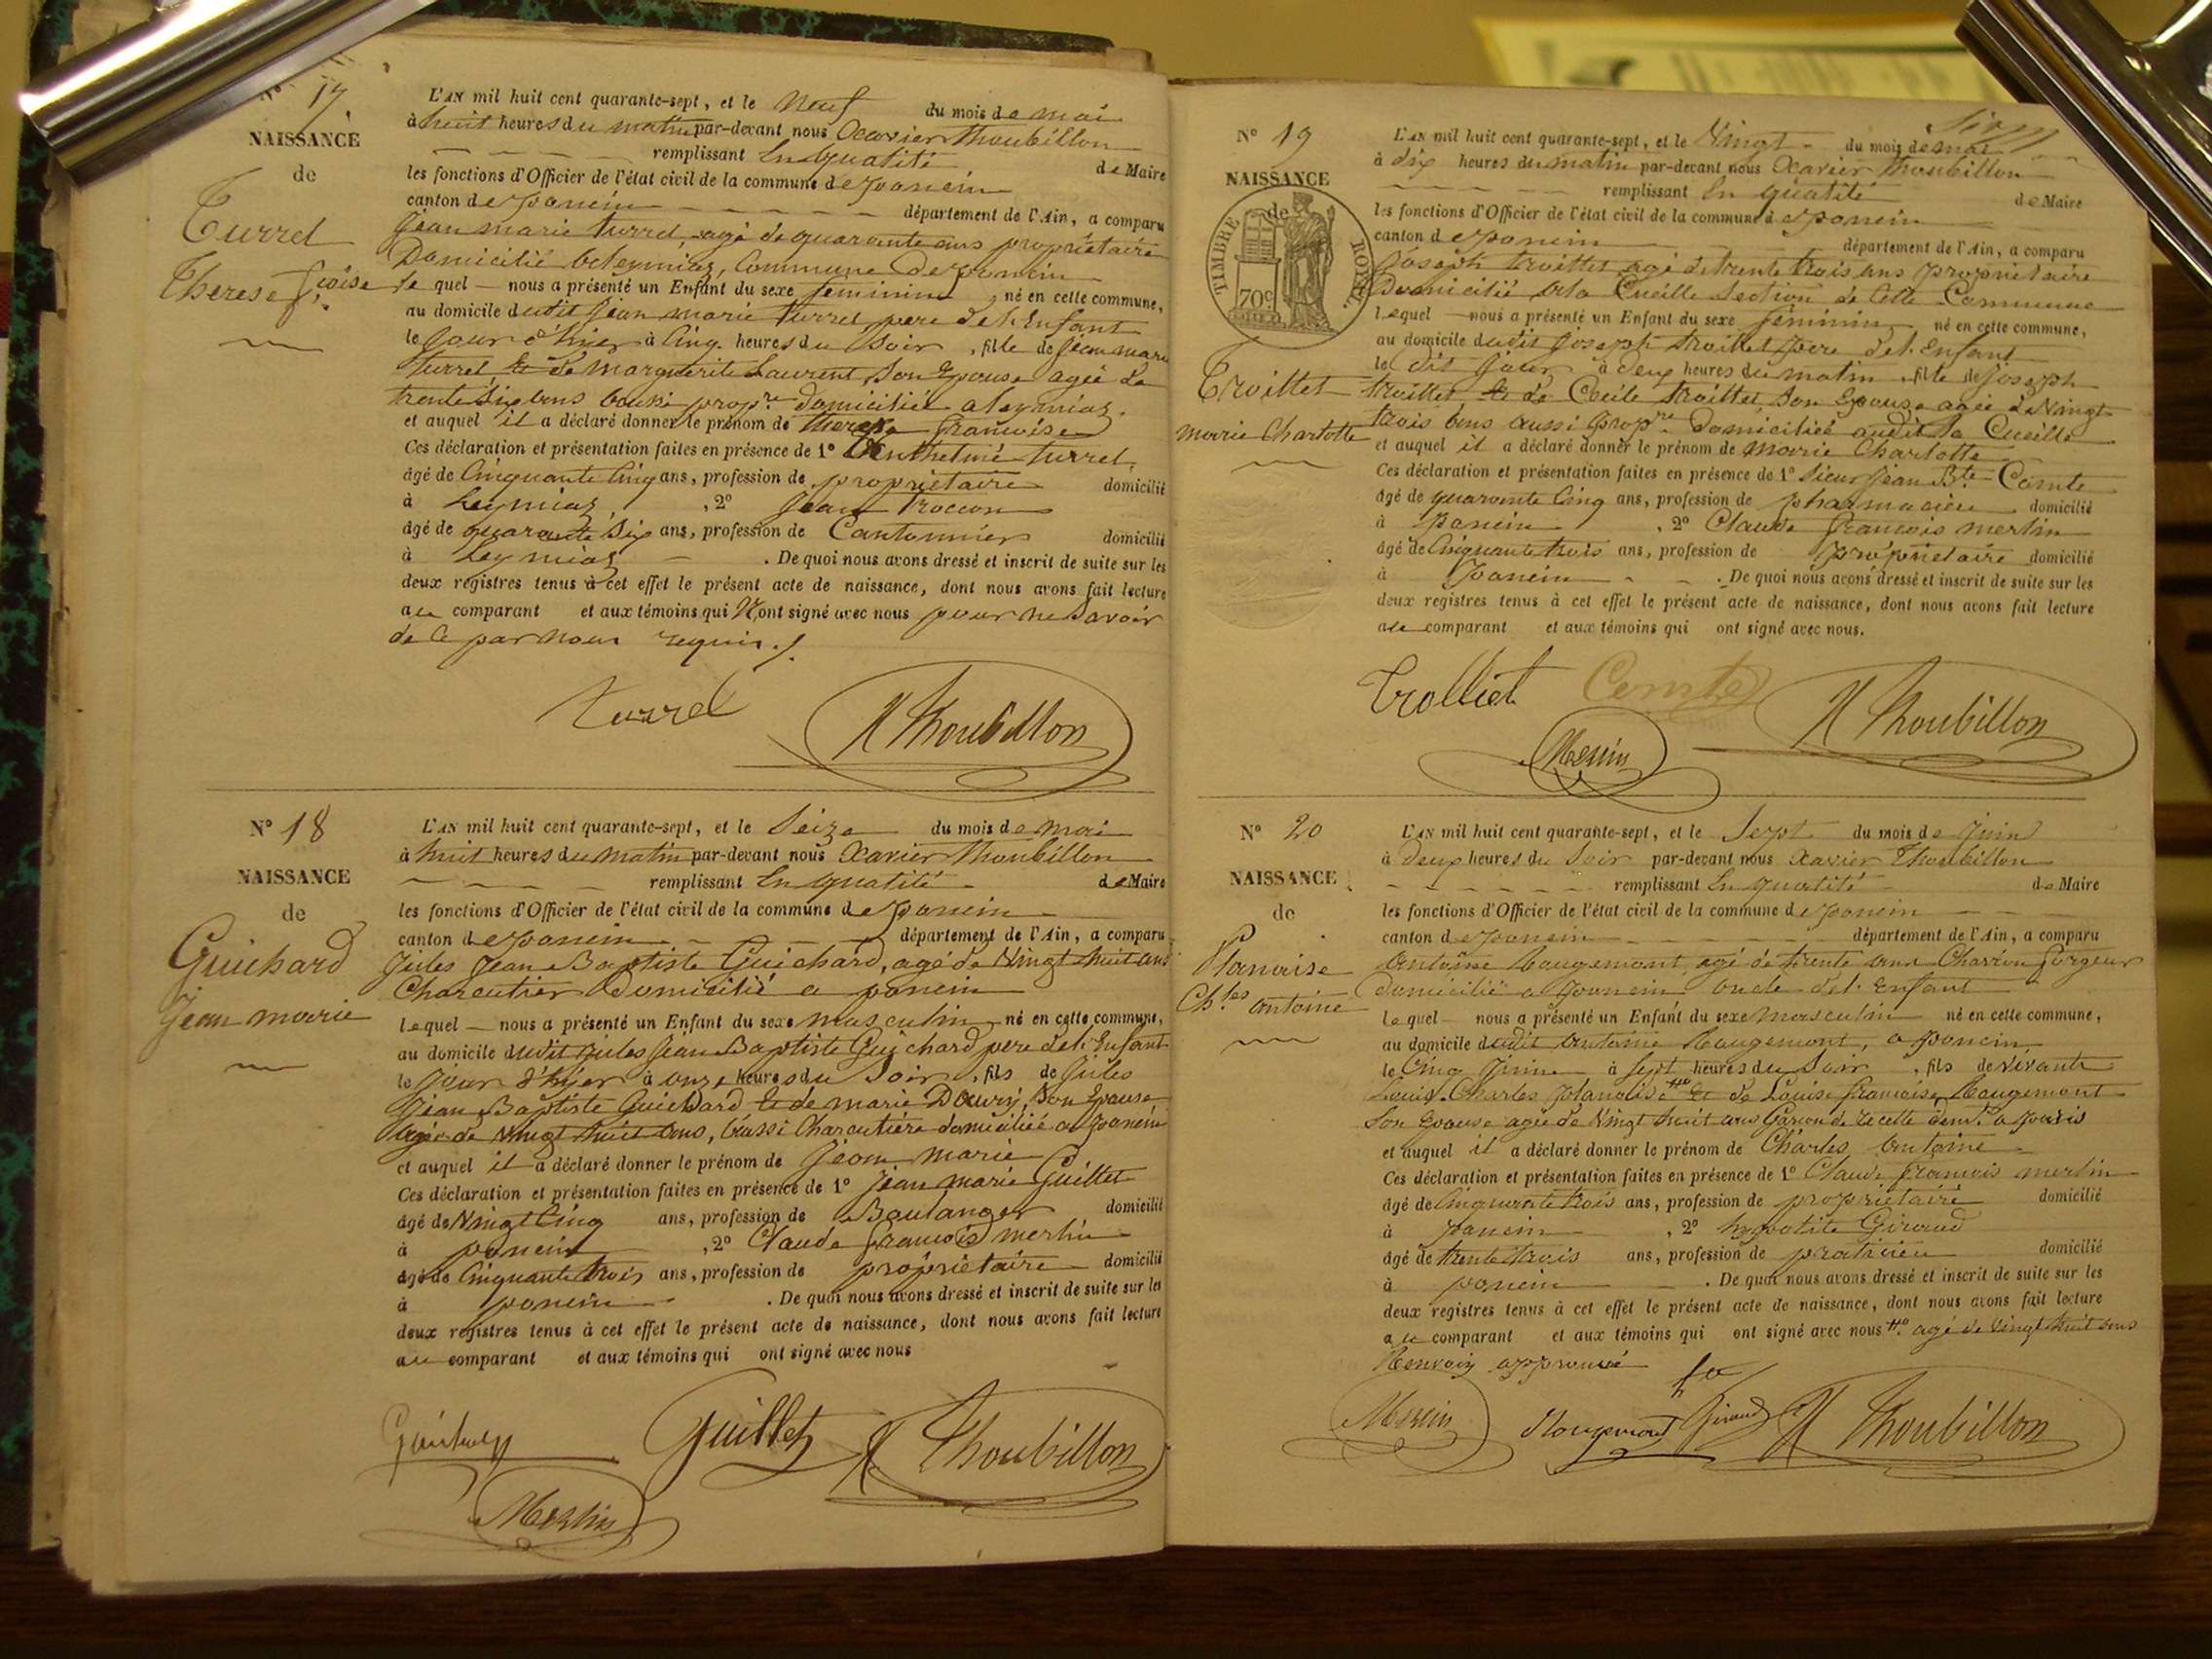 N° 17
NAISSANCE
de
Turrel
Therese fçoise
L'AN mil huit cent quarante-sept, et le Neuf du mois de mai
à huit heures du matin par-devant nous Xavier Thoubillon
remplissant En qualité de Maire
les fonctions d'Officier de l'état civil de la commune de poncin
canton de poncin département de l'Ain, a comparu
Jean marie turrel, agé de quarante ans propriétaire
Domicilié a leymiaz, Commune de poncin
le quel nous a présenté un Enfant du sexe feminin, né en cette commune,
au domicile dudit Jean marie turrel pere de l'Enfant
le Jour d'hier à Cinq heures du Soir, fille de Jean marie
turrel et de Marguerite Laurent, Son Epouse agée de
trente Six ans aussi prop.re domiciliée a leymiaz.
et auquel il a déclaré donner le prénom de therese francoise
Ces déclaration et présentation faites en présence de 1° Anthelme turrel,
âgé de Cinquante Cinq ans, profession de propriétaire domicilié
à Leymiaz, 2° Jean troccon
âgé de quarante Six ans, profession de Cantonnier domicilié
à Leymiaz. De quoi nous avons dressé et inscrit de suite sur les
deux registres tenus à cet effet le présent acte de naissance, dont nous avons fait lecture
au comparant et aux témoins qui N'ont signé avec nous pour ne Savoir
de ce par nous requis./.
turrel X Thoubillon
N° 18
NAISSANCE
de
Guichard
Jean marie
L'AN mil huit cent quarante-sept, et le Seize du mois de mai
à huit heures du matin par-devant nous Xavier Thoubillon
remplissant En qualité de Maire
les fonctions d'Officier de l'état civil de la commune de poncin
canton de poncin département de l'Ain, a comparu
Jules Jean Baptiste Guichard, agé de Vingt huit ans
Charcutier Domicilié a poncin
lequel nous a présenté un Enfant du sexe masculin né en cette commune,
au domicile dudit Jules Jean Baptiste Guichard pere de l'Enfant
le Jour d'hier à onze heures du Soir, fils de Jules
Jean Baptiste Guichard et de marie Dauvy, Son Epouse
agée de Vingt huit ans, aussi Charcutière domiciliée a poncin
et auquel il a déclaré donner le prénom de Jean marie
Ces déclaration et présentation faites en présence de 1° Jean marie Guillet
âgé de Vingt Cinq ans, profession de Boulanger domicilié
à poncin, 2° Claude francois merlin
âgé de Cinquante trois ans, profession de propriétaire domicilié
à poncin. De quoi nous avons dressé et inscrit de suite sur les
deux registres tenus à cet effet le présent acte de naissance, dont nous avons fait lecture
au comparant et aux témoins qui ont signé avec nous
Guillet X Thoubillon
Merlin
N° 19
NAISSANCE
de
TIMBRE ROYAL
70c
Troillet
marie Charlotte
L'AN mil huit cent quarante-sept, et le Vingt du mois de mai
à dix heures du matin par-devant nous Xavier Thoubillon
remplissant En qualité de Maire
les fonctions d'Officier de l'état civil de la commune de poncin
canton de poncin département de l'Ain, a comparu
Joseph troillet agé de trente trois ans propriétaire
Domicilié a la Cueille Section de Cette Commune
lequel nous a présenté un Enfant du sexe féminin, né en cette commune,
au domicile dudit Joseph troillet pere de l'Enfant
le dit Jour à deux heures du matin, fille de Joseph
troillet et de Cécile troillet, Son Epouse agée de Vingt
trois ans aussi prop.re domiciliée audit la Cueille
et auquel il a déclaré donner le prénom de marie Charlotte
Ces déclaration et présentation faites en présence de 1° Sieur Jean Bte Comte
âgé de quarante Cinq ans, profession de pharmacien domicilié
à poncin, 2° Claude francois merlin
âgé de Cinquante trois ans, profession de propriétaire domicilié
à poncin. De quoi nous avons dressé et inscrit de suite sur les
deux registres tenus à cet effet le présent acte de naissance, dont nous avons fait lecture
au comparant et aux témoins qui ont signé avec nous.
Trolliet Comte X Thoubillon
Merlin
N° 20
NAISSANCE
de
Planaise
Ch.les antoine
L'AN mil huit cent quarante-sept, et le Sept du mois de Juin
à deux heures du Soir par-devant nous Xavier Thoubillon
remplissant En qualité de Maire
les fonctions d'Officier de l'état civil de la commune de poncin
canton de poncin département de l'Ain, a comparu
antoine Rougemont agé de trente ans Charron forgeur
domicilié a poncin oncle de l'Enfant
lequel nous a présenté un Enfant du sexe masculin né en cette commune,
au domicile dudit antoine Rougemont, a poncin
le Cinq Juin à Sept heures du Soir, fils de
Louis Charles planaise et de Louise francoise Rougemont
Son Epouse agée de Vingt huit ans Garçon de recette dem.t a paris
et auquel il a déclaré donner le prénom de Charles antoine
Ces déclaration et présentation faites en présence de 1° Claude francois merlin
âgé de Cinquante trois ans, profession de propriétaire domicilié
à poncin, 2° hypolite Giraud
âgé de trente trois ans, profession de praticien domicilié
à poncin. De quoi nous avons dressé et inscrit de suite sur les
deux registres tenus à cet effet le présent acte de naissance, dont nous avons fait lecture
au comparant et aux témoins qui ont signé avec nous agé de Vingt huit ans
Renvoi approuvé
Merlin Rougemont Giraud X Thoubillon